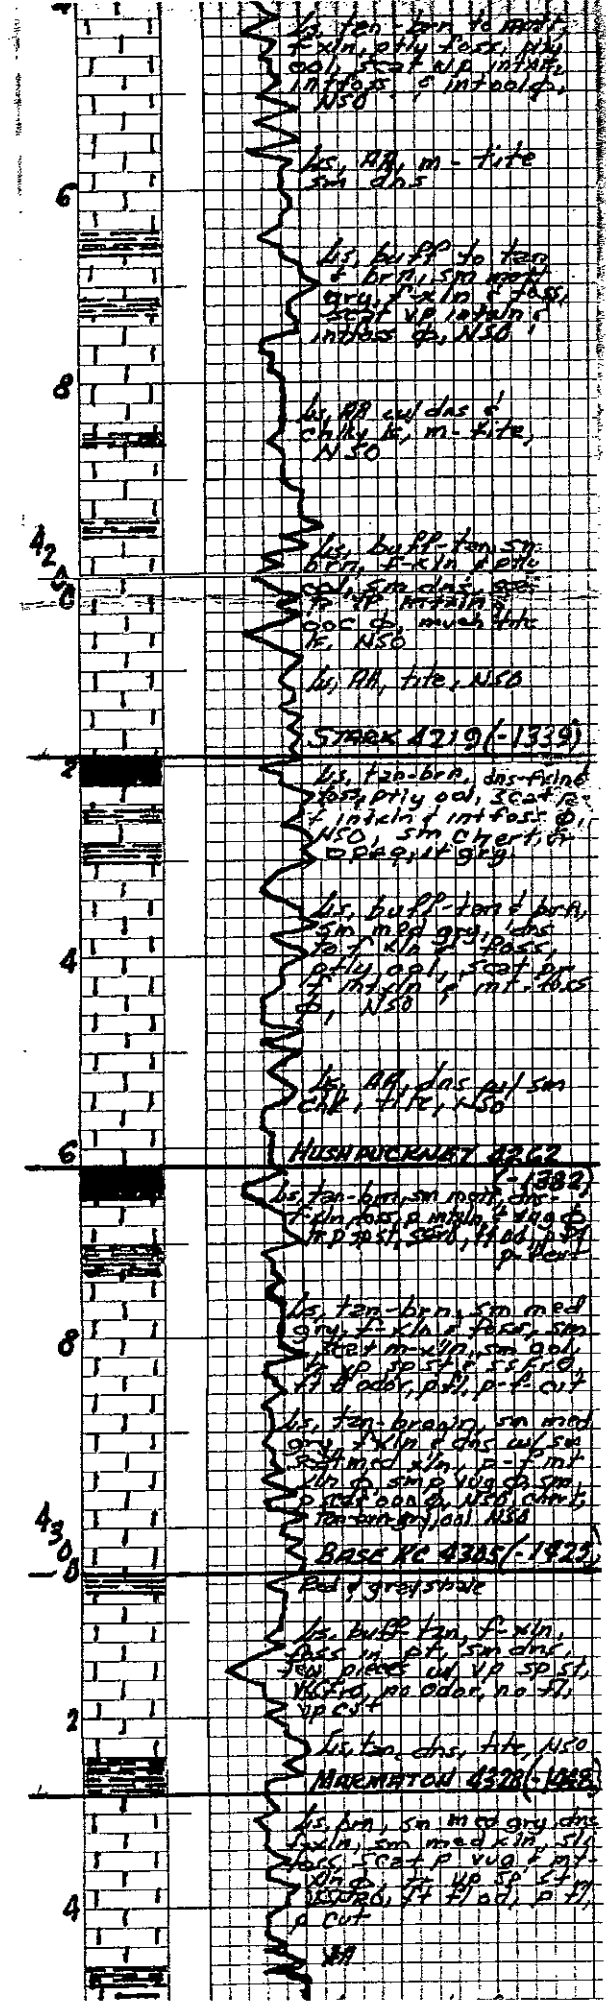 Ls, tan-brn to mott,
f-xln, ptly foss, ptly
ool, scat vp intxln,
intfoss & intool ϕ,
NSO
Ls, AA, m-tite
sm dns
6
Ls, buff to tan
& brn, sm mott
gry, f-xln & foss,
scat vp intxln &
intfoss ϕ, NSO
8
Ls, AA w/ dns &
chlky ls, m-tite,
NSO
4200
Ls, buff-tan, sm
brn, f-xln & ptly
ool, sm dns,
vp intxln &
ooc ϕ, much tite
ls, NSO
Ls, AA, tite, NSO
STARK 4219 (-1339)
2
Ls, tan-brn, dns-f-xln &
foss, ptly ool, scat p-
f intxln & intfoss ϕ,
NSO, sm chert,
opaq, lt gry
Ls, buff-tan & brn,
sm med gry, dns
to f xln & foss,
4
ptly ool, scat pr-
f intxln & int-foss
ϕ, NSO
Ls, AA, dns w/ sm
chk, tite, NSO
6
HUSHPUCKNEY 4262
(-1382)
Ls, tan-brn, sm mott, dns-
f-xln, foss, p intxln & vug ϕ
p-f cut
Ls, tan-brn, sm med
8
gry, f-xln & foss, sm
scat m-xln, sm ool,
vp sp st & ssfro,
ft odor, p fl, p-f cut
Ls, tan-brown, sm med
gry, f xln & dns w/ sm
scat med xln, p-f int
xln ϕ, sm p vug ϕ, sm
p scat ooc ϕ, NSO, chert,
tan-brn-gry, ool, NSO
4300
BASE KC 4305 (-1425)
Red & grey shale
Ls, buff-tan, f-xln,
foss in pt, sm dns,
few pieces w/ vp sp st,
VSSFO, no odor, no fl,
vp cut
2
Ls, tan, dns, tite, NSO
MARMATON 4328 (-1448)
Ls, brn, sm med gry, dns
f-xln, sm med xln, sli
foss, scat p vug & int-
xln ϕ, vp sp st,
VSSFO, ft fl od, p fl,
4
p cut
AA